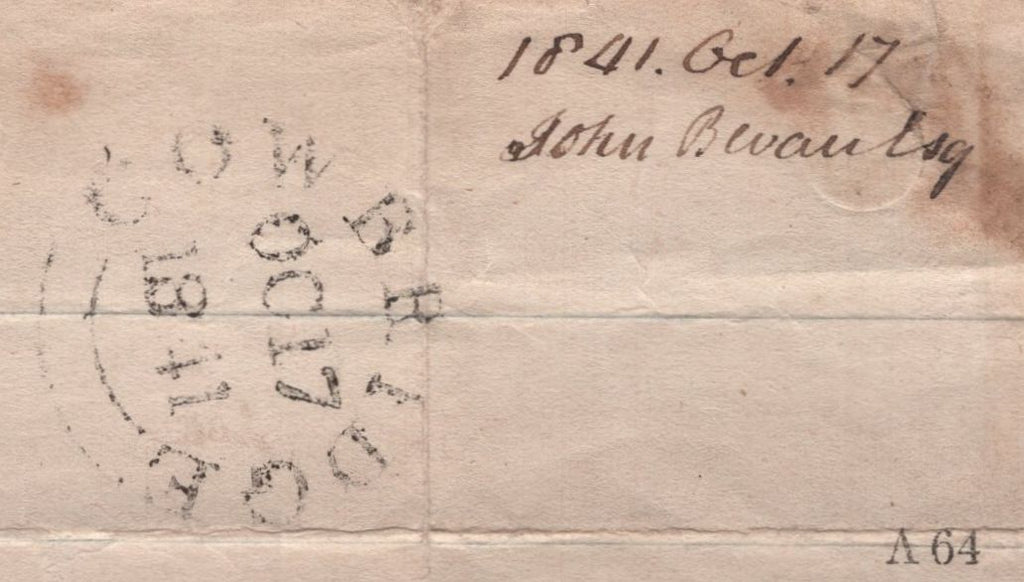 1841. Oct. 17
John Bevan Esq
COWBRIDGE
OC 17
1841
A 64